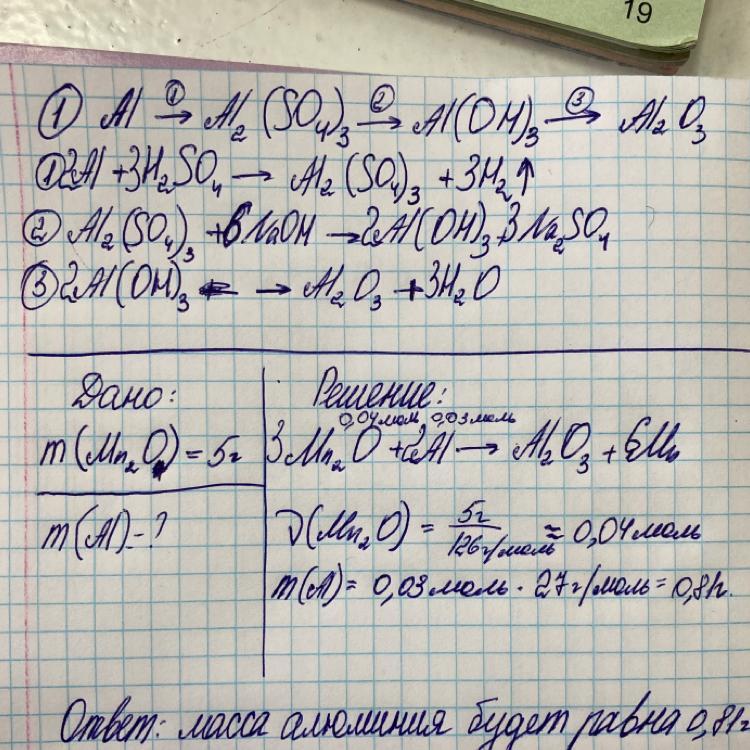 19
① Al →① Al₂(SO₄)₃ →② Al(OH)₃ →③ Al₂O₃
① 2Al + 3H₂SO₄ → Al₂(SO₄)₃ + 3H₂↑
② Al₂(SO₄)₃ + 6NaOH → 2Al(OH)₃ + 3Na₂SO₄
③ 2Al(OH)₃ → Al₂O₃ + 3H₂O
Дано:
m(Mn₂O) = 5г
m(Al) - ?
Решение:
0,04моль 0,03моль
3Mn₂O + 2Al → Al₂O₃ + 6Mn
ν(Mn₂O) = 5г / 126г/моль ≈ 0,04моль
m(Al) = 0,03моль · 27г/моль = 0,81г.
Ответ: масса алюминия будет равна 0,81г